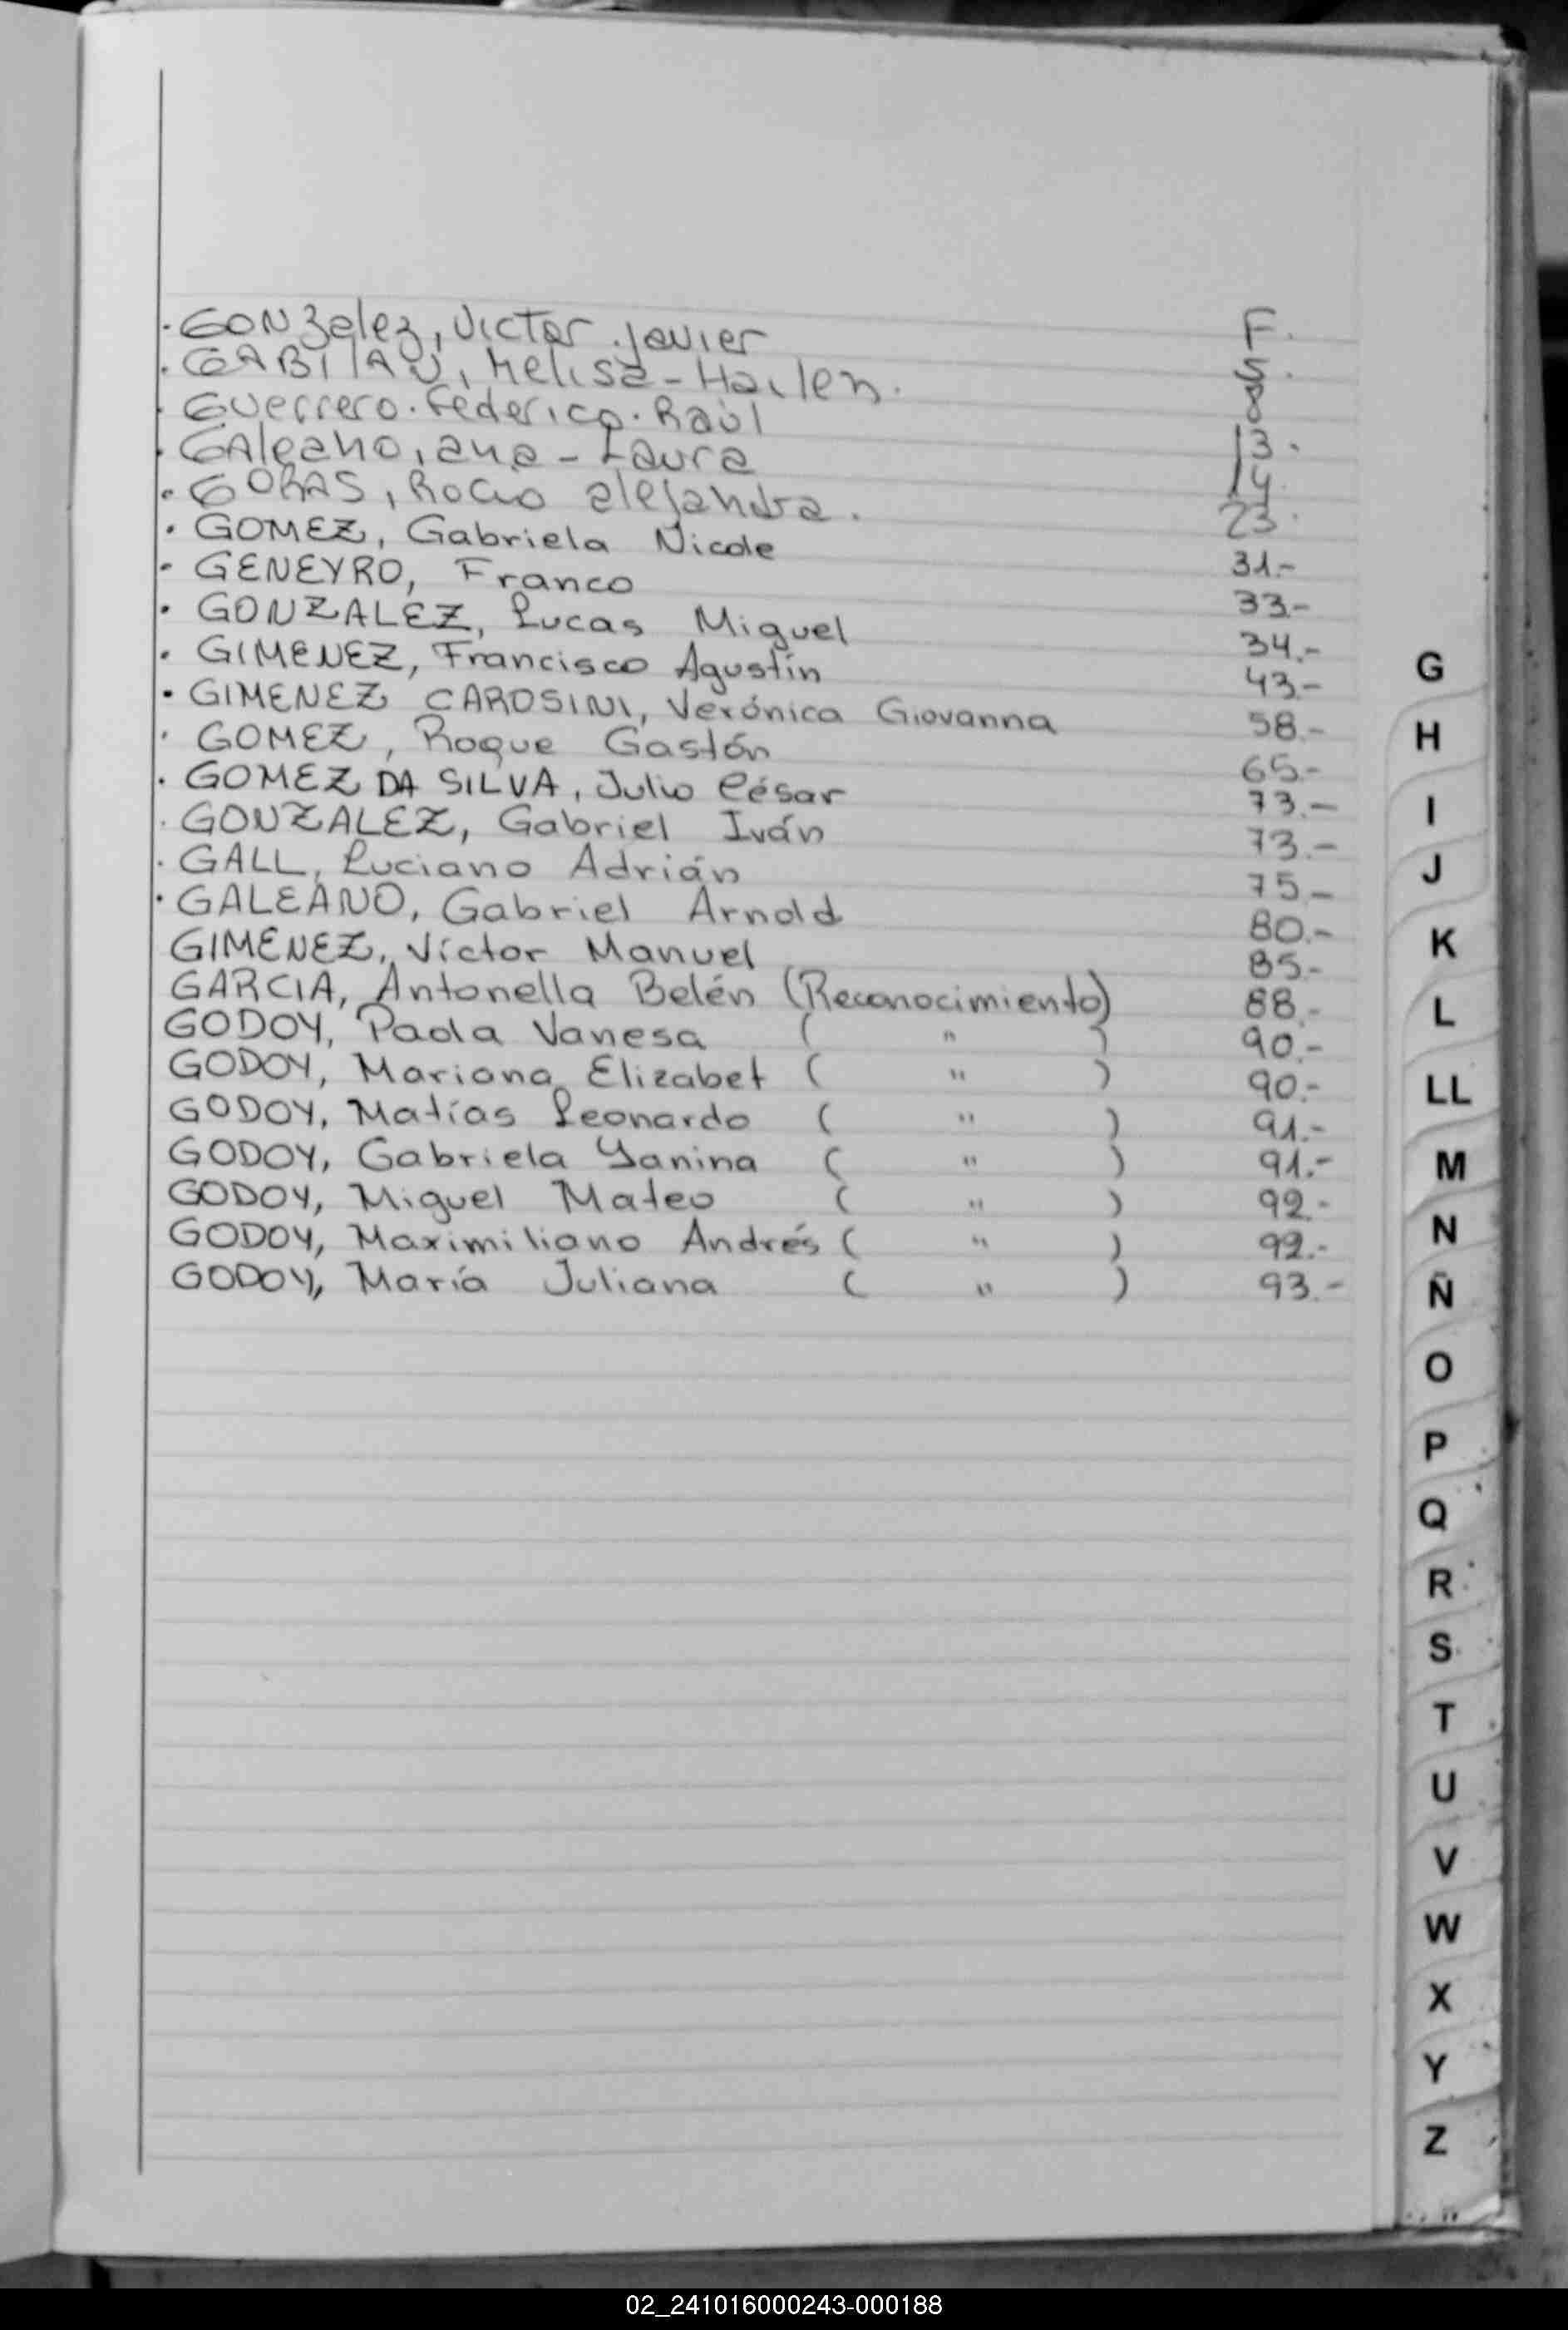 F.
· GONZalez, Victor Javier 5.
· GABILAN, Melisa - Hailen. 8
· Guerrero. Federico. Raúl 13.
· GAleano, ana - Laura 14.
· GORAS, ROCIO alejandra. 23.
· GOMEZ, Gabriela Nicole 31.-
· GENEYRO, Franco 33.-
· GONZALEZ, Lucas Miguel 34.-
· GIMENEZ, Francisco Agustín 43.-
· GIMENEZ CAROSINI, Verónica Giovanna 58.-
· GOMEZ, Roque Gastón 65.-
· GOMEZ DA SILVA, Julio César 73.-
· GONZALEZ, Gabriel Iván 73.-
· GALL, Luciano Adrián 75-
· GALEANO, Gabriel Arnold 80.-
GIMENEZ, Víctor Manuel 85.-
GARCIA, Antonella Belén (Reconocimiento) 88.-
GODOY, Paola Vanesa ( " ) 90.-
GODOY, Mariana Elizabet ( " ) 90.-
GODOY, Matías Leonardo ( " ) 91.-
GODOY, Gabriela Yanina ( " ) 91.-
GODOY, Miguel Mateo ( " ) 92.-
GODOY, Maximiliano Andrés ( " ) 92.-
GODOY, María Juliana ( " ) 93.-
G
H
I
J
K
L
LL
M
N
Ñ
O
P
Q
R
S
T
U
V
W
X
Y
Z
02_241016000243-000188